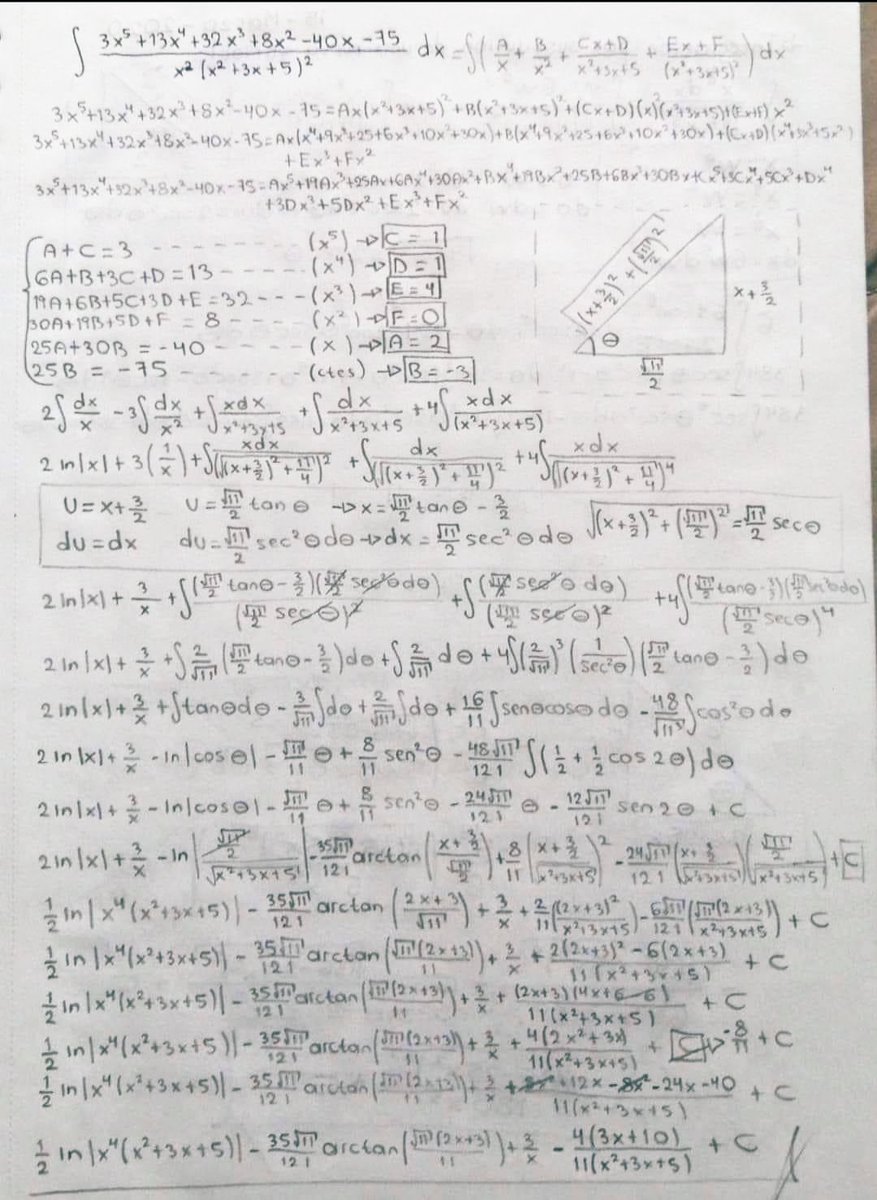 ∫ (3x⁵+13x⁴+32x³+8x²-40x-75)/(x²(x²+3x+5)²) dx = ∫(A/x + B/x² + (Cx+D)/(x²+3x+5) + (Ex+F)/(x²+3x+5)²) dx
3x⁵+13x⁴+32x³+8x²-40x-75 = Ax(x²+3x+5)²+B(x²+3x+5)²+(Cx+D)(x)²(x²+3x+5)+(Ex+F)x²
3x⁵+13x⁴+32x³+8x²-40x-75 = Ax(x⁴+9x²+25+6x³+10x²+30x)+B(x⁴+9x²+25+6x³+10x²+30x)+(Cx+D)(x⁴+3x³+5x²)
+Ex³+Fx²
3x⁵+13x⁴+32x³+8x²-40x-75 = Ax⁵+19Ax³+25Ax+6Ax⁴+30Ax²+Bx⁴+19Bx²+25B+6Bx³+30Bx+Cx⁵+3Cx⁴+5Cx³+Dx⁴
+3Dx³+5Dx²+Ex³+Fx²
A+C=3 - - - - - - - (x⁵) → C=1
6A+B+3C+D=13 - - - - - (x⁴) → D=1
19A+6B+5C+3D+E=32 - - - (x³) → E=4
30A+19B+5D+F=8 - - - - (x²) → F=0
25A+30B=-40 - - - - - (x) → A=2
25B=-75 - - - - - - (ctes) → B=-3
√((x+3/2)²+(√11/2)²)
x+3/2
θ
√11/2
2∫dx/x - 3∫dx/x² + ∫xdx/(x²+3x+5) + ∫dx/(x²+3x+5) + 4∫xdx/(x²+3x+5)
2ln|x|+3(1/x)+∫xdx/(√((x+3/2)²+11/4))² + ∫dx/(√((x+3/2)²+11/4))² + 4∫xdx/(√((x+3/2)²+11/4))⁴
U=x+3/2 U=√11/2 tanθ → x=√11/2 tanθ - 3/2 √((x+3/2)²+(√11/2)²) = √11/2 secθ
du=dx du=√11/2 sec²θdθ → dx=√11/2 sec²θdθ
2ln|x|+3/x+∫(√11/2 tanθ-3/2)(√11/2 sec²θdθ)/(√11/2 secθ)² + ∫(√11/2 sec²θdθ)/(√11/2 secθ)² + 4∫(√11/2 tanθ-3/2)(√11/2 sec²θdθ)/(√11/2 secθ)⁴
2ln|x|+3/x+∫2/√11(√11/2 tanθ-3/2)dθ+∫2/√11 dθ+4∫(2/√11)³(1/sec²θ)(√11/2 tanθ-3/2)dθ
2ln|x|+3/x+∫tanθdθ-3/√11∫dθ+2/√11∫dθ+16/11∫senθcosθdθ-48/√11³∫cos²θdθ
2ln|x|+3/x-ln|cosθ|-√11/11 θ+8/11 sen²θ-48√11/121∫(1/2+1/2 cos2θ)dθ
2ln|x|+3/x-ln|cosθ|-√11/11 θ+8/11 sen²θ-24√11/121 θ-12√11/121 sen2θ+C
2ln|x|+3/x-ln|(√11/2)/√(x²+3x+5)|-35√11/121 arctan((x+3/2)/(√11/2))+8/11((x+3/2)/√(x²+3x+5))²-24√11/121((x+3/2)/√(x²+3x+5))((√11/2)/√(x²+3x+5))+C
1/2 ln|x⁴(x²+3x+5)|-35√11/121 arctan((2x+3)/√11)+3/x+2/11((2x+3)²/(x²+3x+5))-6√11/121(√11(2x+3)/(x²+3x+5))+C
1/2 ln|x⁴(x²+3x+5)|-35√11/121 arctan(√11(2x+3)/11)+3/x+(2(2x+3)²-6(2x+3))/(11(x²+3x+5))+C
1/2 ln|x⁴(x²+3x+5)|-35√11/121 arctan(√11(2x+3)/11)+3/x+(2x+3)(4x+6-6)/(11(x²+3x+5))+C
1/2 ln|x⁴(x²+3x+5)|-35√11/121 arctan(√11(2x+3)/11)+3/x+4(2x²+3x)/(11(x²+3x+5))+C → -8/11+C
1/2 ln|x⁴(x²+3x+5)|-35√11/121 arctan(√11(2x+3)/11)+3/x+(8x²+12x-8x²-24x-40)/(11(x²+3x+5))+C
1/2 ln|x⁴(x²+3x+5)|-35√11/121 arctan(√11(2x+3)/11)+3/x-4(3x+10)/(11(x²+3x+5))+C